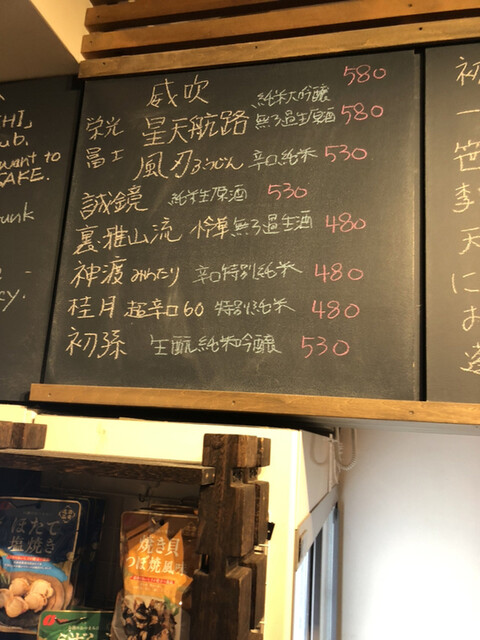 威吹 純米大吟醸 580
栄光冨士 星天航路 無ろ過生原酒 580
風刃 ふうじん 辛口純米 530
誠鏡 純米生原酒 530
裏・雅山流 怜華 無ろ過生酒 480
神渡 みわたり 辛口特別純米 480
桂月 超辛口60 特別純米 480
初孫 生酛純米吟醸 530
want to
SAKE.
ほたて
塩焼き
焼き貝
つぼ焼風味